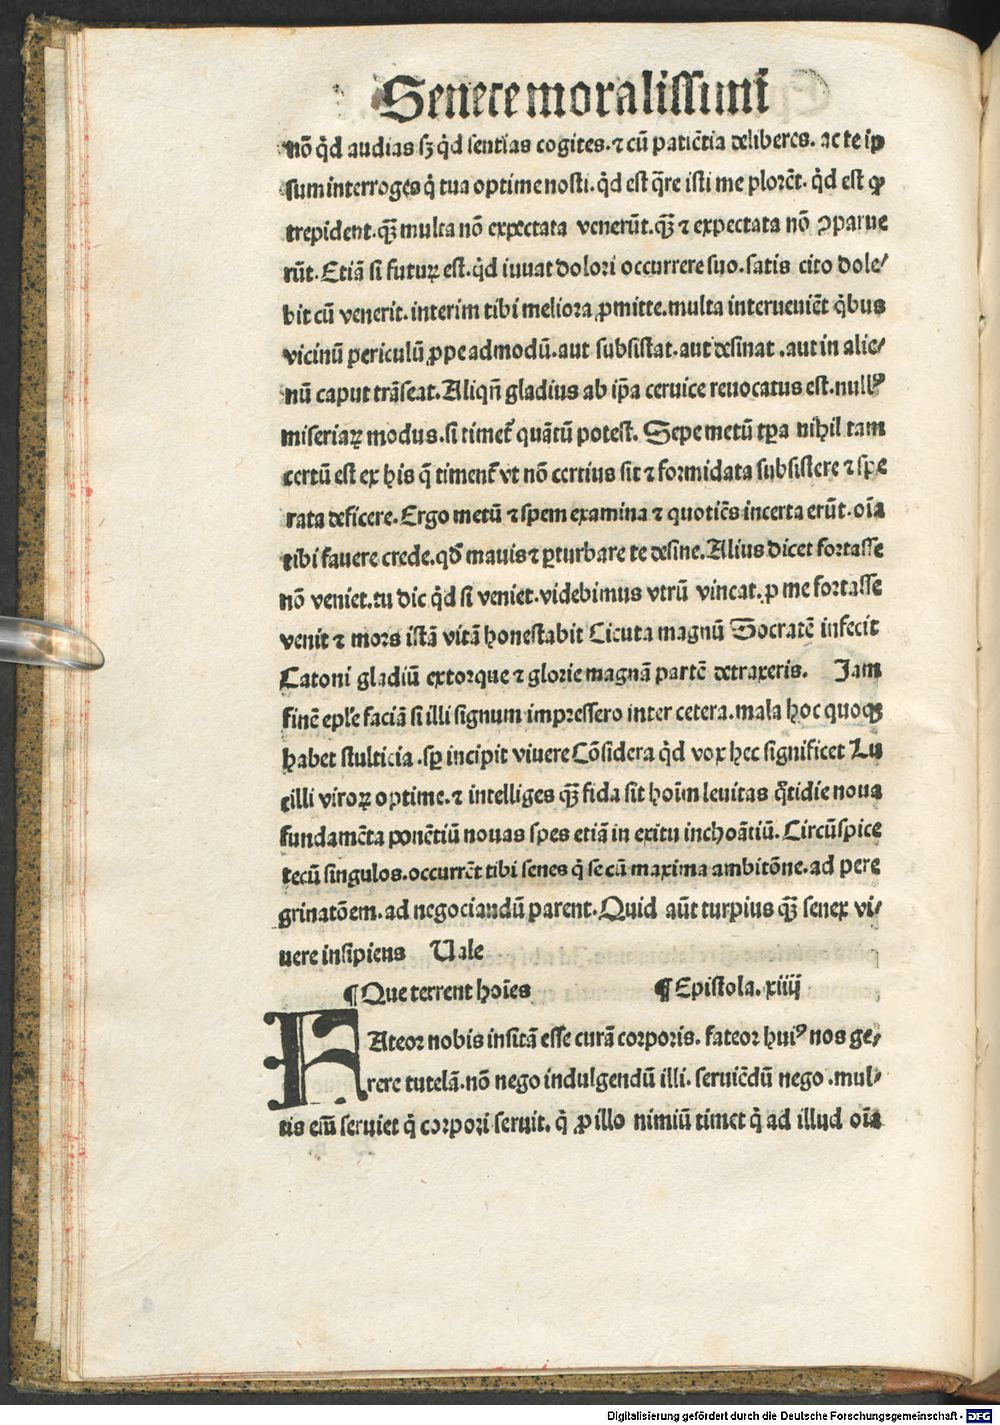 Senece moralissimi
nō qͥd audias sꝫ qͥd sentias cogites. ⁊ cū patiētia deliberes. ac te ip
sum interroges qͥ tua optime nosti. qͥd est q̄re isti me plorēt. qͥd est ꝙ
trepident. qꝫ̄ multa nō expectata venerūt. qꝫ̄ ⁊ expectata nō ꝯparue
rūt. Etiā si futuꝝ est. qͥd iuuat dolori occurrere suo. satis cito dole/
bit cū venerit. interim tibi meliora ꝓmitte. multa interueniēt qͥbus
vicinū periculū ꝓpe admodū. aut subsistat. aut desinat . aut in alie/
nū caput trāseat. Aliqn̄ gladius ab ip̄a ceruice reuocatus est. nullꝰ
miseriaꝝ modus. si timet᷑ quātū potest. Sepe metū tꝑa nihil tam
certū est ex his q̄ timent᷑ vt nō certius sit ⁊ formidata subsistere ⁊ spe
rata deficere. Ergo metū ⁊ spem examina ⁊ quotiēs incerta erūt. oīa
tibi fauere crede. qd̄ mauis ⁊ ꝑturbare te desine. Alius dicet fortasse
nō veniet. tu dic qͥd si veniet. videbimus vtrū vincat. ꝑ me fortasse
venit ⁊ mors istā vitā honestabit Cicuta magnū Socratē infecit
Catoni gladiū extorque ⁊ glorie magnā partē detraxeris. Jam
finē epl̄e faciā si illi signum impressero inter cetera. mala hoc quoqꝫ
habet stulticia . sꝑ incipit viuere Cōsidera qͥd vox hec significet Lu
cilli viroꝝ optime. ⁊ intelliges qꝫ̄ fida sit hoīm leuitas qͦtidie noua
fundamēta ponētiū nouas spes etiā in exitu inchoātiū. Circūspice
tecū singulos. occurrēt tibi senes qͥ se cū maxima ambitōne. ad pere
grinatōem. ad negociandū parent. Quid aūt turpius qꝫ̄ senex vi/
uere insipiens Uale
¶ Que terrent hoīes ¶ Epistola. xiiij
FAteor nobis insitā esse curā corporis. fateor huiꝰ nos ge/
rere tutelā. nō nego indulgendū illi. seruiēdū nego . mul/
tis eīm seruiet qͥ corpori seruit. qͥ ꝓ illo nimiū timet qͥ ad illud oīa
Digitalisierung gefördert durch die Deutsche Forschungsgemeinschaft - DFG